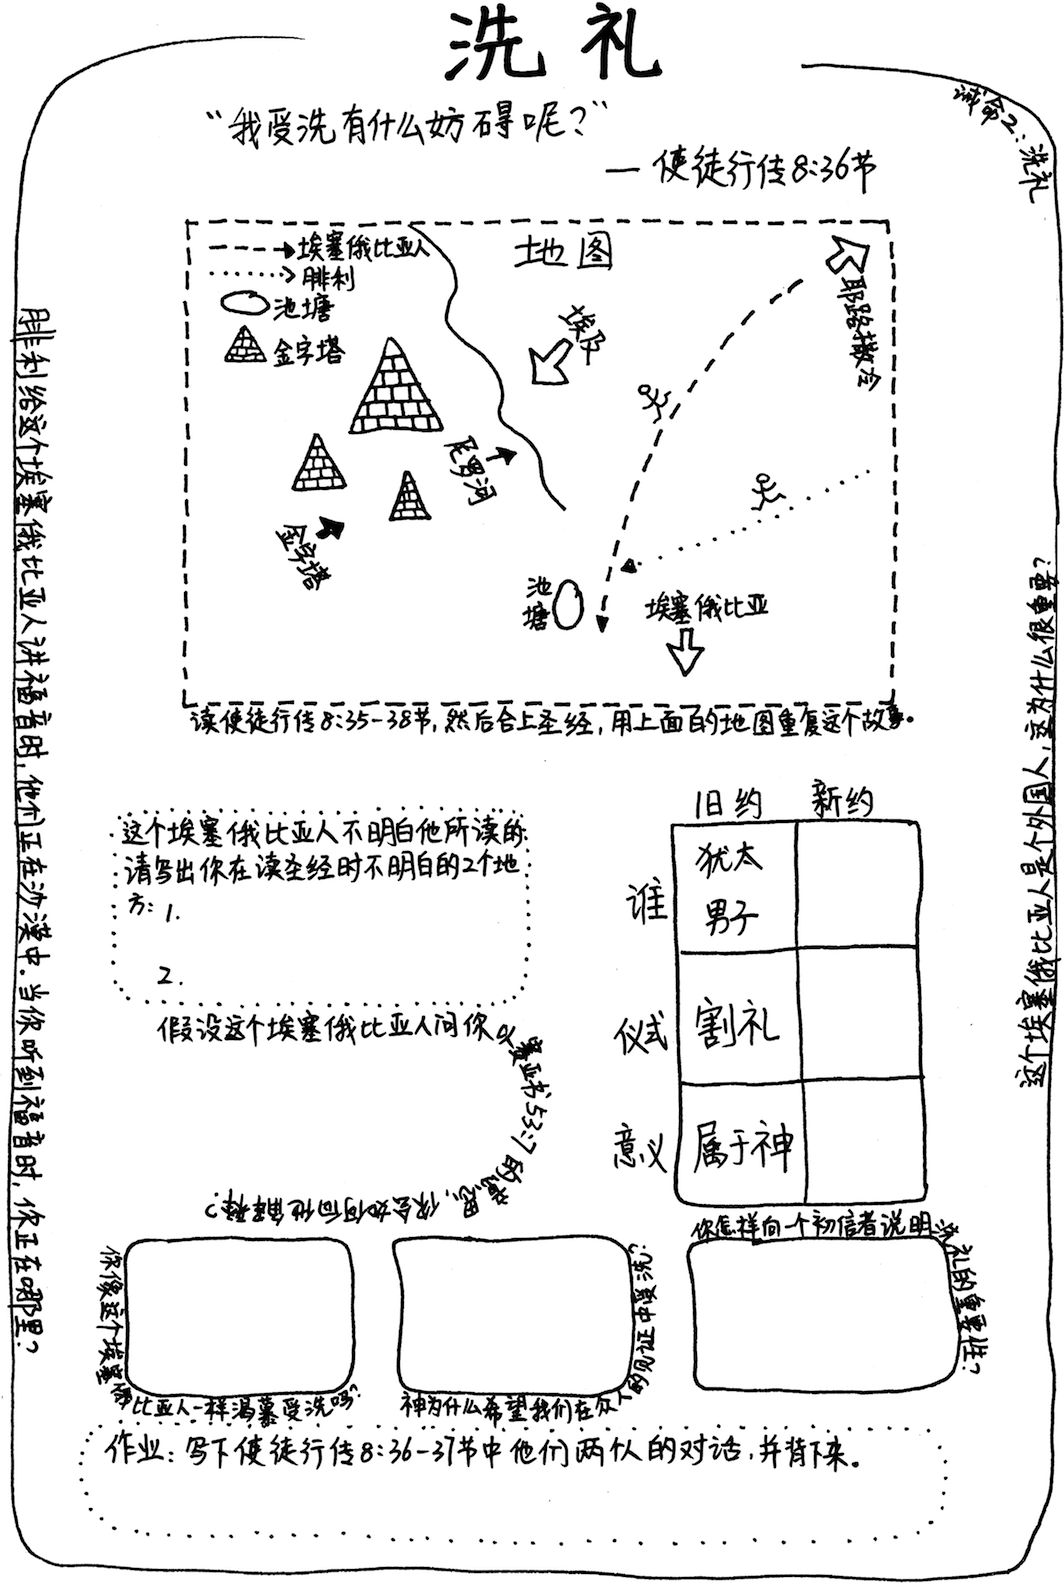 洗礼
“我受洗有什么妨碍呢？”
— 使徒行传8:36节
诫命2:洗礼
埃塞俄比亚人
腓利
池塘
金字塔
地图
埃及
耶路撒冷
尼罗河
金字塔
池塘
埃塞俄比亚
读使徒行传8:35-38节,然后合上圣经,用上面的地图重复这个故事。
腓利给这个埃塞俄比亚人讲福音时,他们正在沙漠中.当你听到福音时,你正在哪里?
这个埃塞俄比亚人是个外国人,这为什么很重要?
这个埃塞俄比亚人不明白他所读的.
请写出你在读圣经时不明白的2个地
方:1.
2.
旧约 新约
谁 犹太男子
仪式 割礼
意义 属于神
假设这个埃塞俄比亚人问你以赛亚书53:7的意思,你会如何向他解释?
你像这个埃塞俄比亚人一样渴慕受洗吗?
神为什么希望我们在众人的见证中受洗?
你怎样向一个初信者说明洗礼的重要性?
作业:写下使徒行传8:36-37节中他们两个人的对话,并背下来。